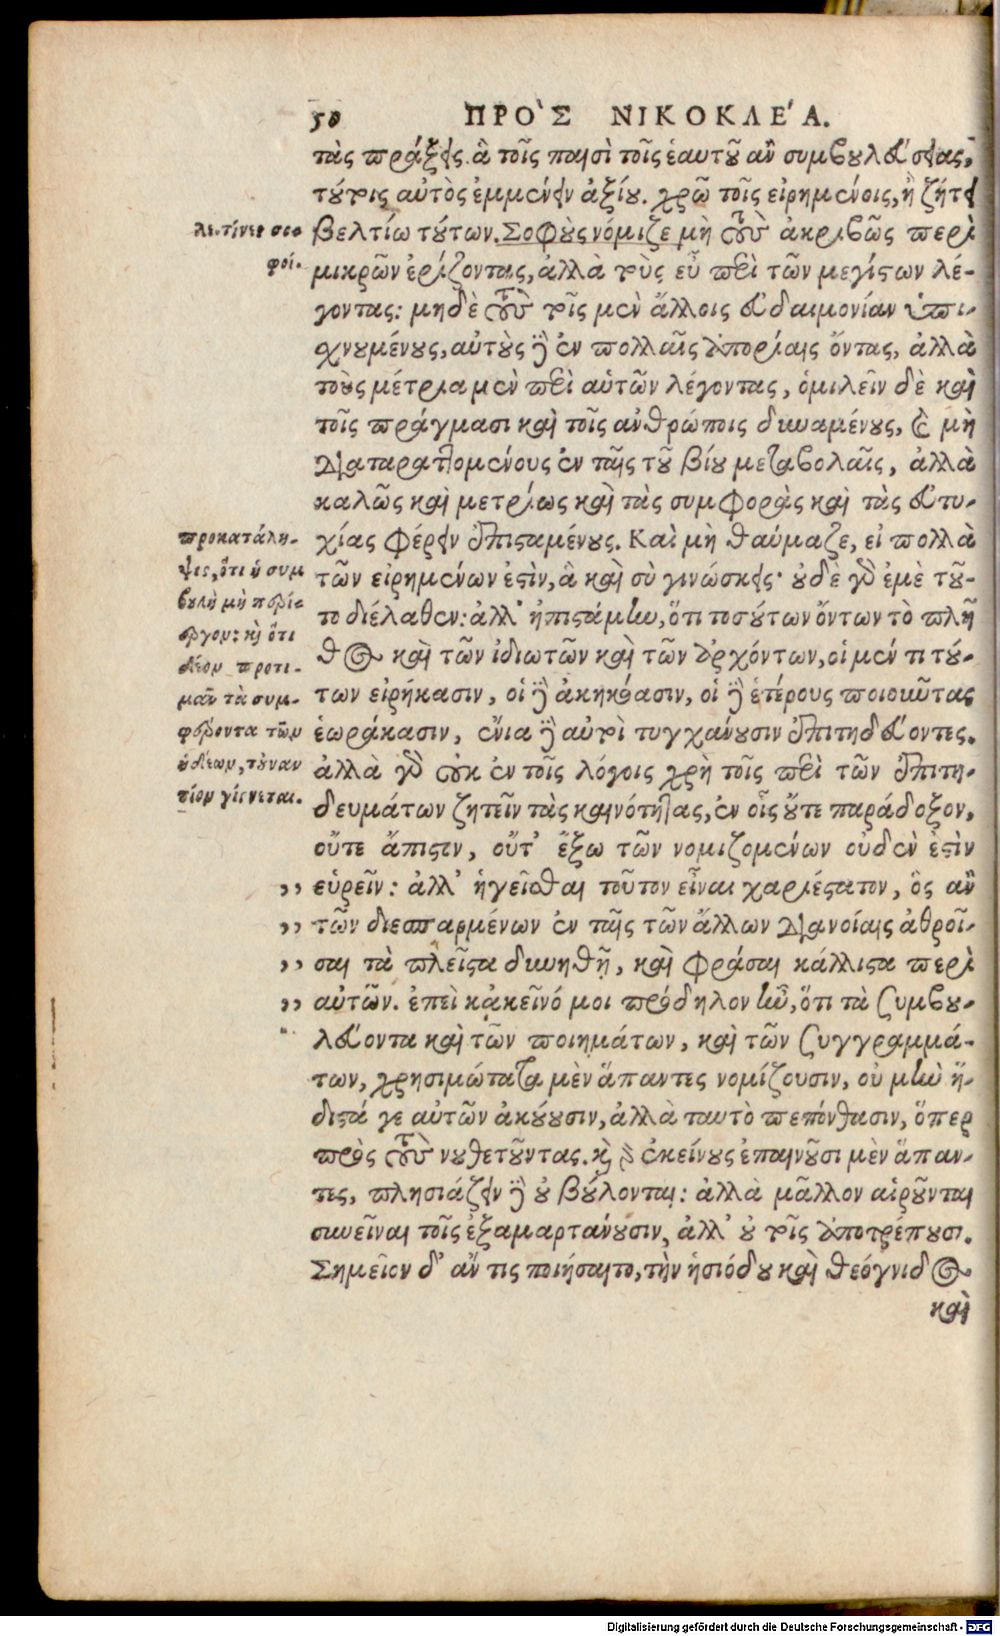 50 ΠΡΟ`Σ ΝΙΚΟΚΛΕ΄Α.
τὰς πράξεις. ἃ τοῖς παισὶ τοῖς ἑαυτοῦ ἂν συμβουλεύσειας,
τούτοις αὐτὸς ἐμμένειν ἀξίου. χρῶ τοῖς εἰρημένοις, ἢ ζήτει
βελτίω τούτων. Σοφοὺς νόμιζε μὴ τοὺς ἀκριβῶς περὶ
μικρῶν ἐρίζοντας, ἀλλὰ τοὺς εὖ περὶ τῶν μεγίστων λέ-
γοντας: μηδὲ τοὺς τοῖς μὲν ἄλλοις εὐδαιμονίαν ὑπι-
χνουμένους, αὐτοὺς δὲ ἐν πολλαῖς ἀπορίαις ὄντας, ἀλλὰ
τοὺς μέτρια μὲν περὶ αὑτῶν λέγοντας, ὁμιλεῖν δὲ καὶ
τοῖς πράγμασι καὶ τοῖς ἀνθρώποις δυναμένους, καὶ μὴ
διαταραττομένους ἐν ταῖς τοῦ βίου μεταβολαῖς, ἀλλὰ
καλῶς καὶ μετρίως καὶ τὰς συμφορὰς καὶ τὰς εὐτυ-
χίας φέρειν ἐπισταμένους. Καὶ μὴ θαύμαζε, εἰ πολλὰ
τῶν εἰρημένων ἐστὶν, ἃ καὶ σὺ γινώσκεις· οὐδὲ γὰρ ἐμὲ τοῦ-
το διέλαθεν: ἀλλ' ἠπιστάμην, ὅτι τοσούτων ὄντων τὸ πλῆ
θος καὶ τῶν ἰδιωτῶν καὶ τῶν ἀρχόντων, οἱ μέν τι τού-
των εἰρήκασιν, οἱ δὲ ἀκηκόασιν, οἱ δὲ ἑτέρους ποιοῦντας
ἑωράκασιν, ἔνια δὲ αὐτοὶ τυγχάνουσιν ἐπιτηδεύοντες.
ἀλλὰ γὰρ οὐκ ἐν τοῖς λόγοις χρὴ τοῖς περὶ τῶν ἐπιτη-
δευμάτων ζητεῖν τὰς καινότητας, ἐν οἷς οὔτε παράδοξον,
οὔτε ἄπιστιν, οὔτ' ἔξω τῶν νομιζομένων οὐδὲν ἐστὶν
,, εὑρεῖν: ἀλλ' ἡγεῖσθαι τοῦτον εἶναι χαριέστατον, ὃς ἂν
,, τῶν διεσπαρμένων ἐν ταῖς τῶν ἄλλων διανοίαις ἀθροῖ-
,, σαι τὰ πλεῖστα δυνηθῇ, καὶ φράσαι κάλλιστα περὶ
,, αὐτῶν. ἐπεὶ κἀκεῖνό μοι πρόδηλον ἦν, ὅτι τὰ συμβου-
λεύοντα καὶ τῶν ποιημάτων, καὶ τῶν συγγραμμά-
των, χρησιμώτατα μὲν ἅπαντες νομίζουσιν, οὐ μὴν ἥ-
διστά γε αὐτῶν ἀκούουσιν, ἀλλὰ ταυτὸ πεπόνθασιν, ὅπερ
πρὸς τοὺς νουθετοῦντας. καὶ γὰρ ἐκείνους ἐπαινοῦσι μὲν ἅπαν-
τες, πλησιάζειν δὲ οὐ βούλονται: ἀλλὰ μᾶλλον αἱροῦνται
συνεῖναι τοῖς ἐξαμαρτάνουσιν, ἀλλ' οὐ τοῖς ἀποτρέπουσι.
Σημεῖον δ' ἄν τις ποιήσαιτο, τὴν ἡσιόδου καὶ θεόγνιδος
καὶ
προκατάλη-
ψις, ὅτι ἡ συμ
βουλὴ μὴ περίε-
εργον: καὶ ὅτι
δέον προτι-
μᾶν τὰ συμ-
φέροντα τῶν
ἡδέων, τοὐναν
τίον γίγνεται.
Digitalisierung gefördert durch die Deutsche Forschungsgemeinschaft - DFG